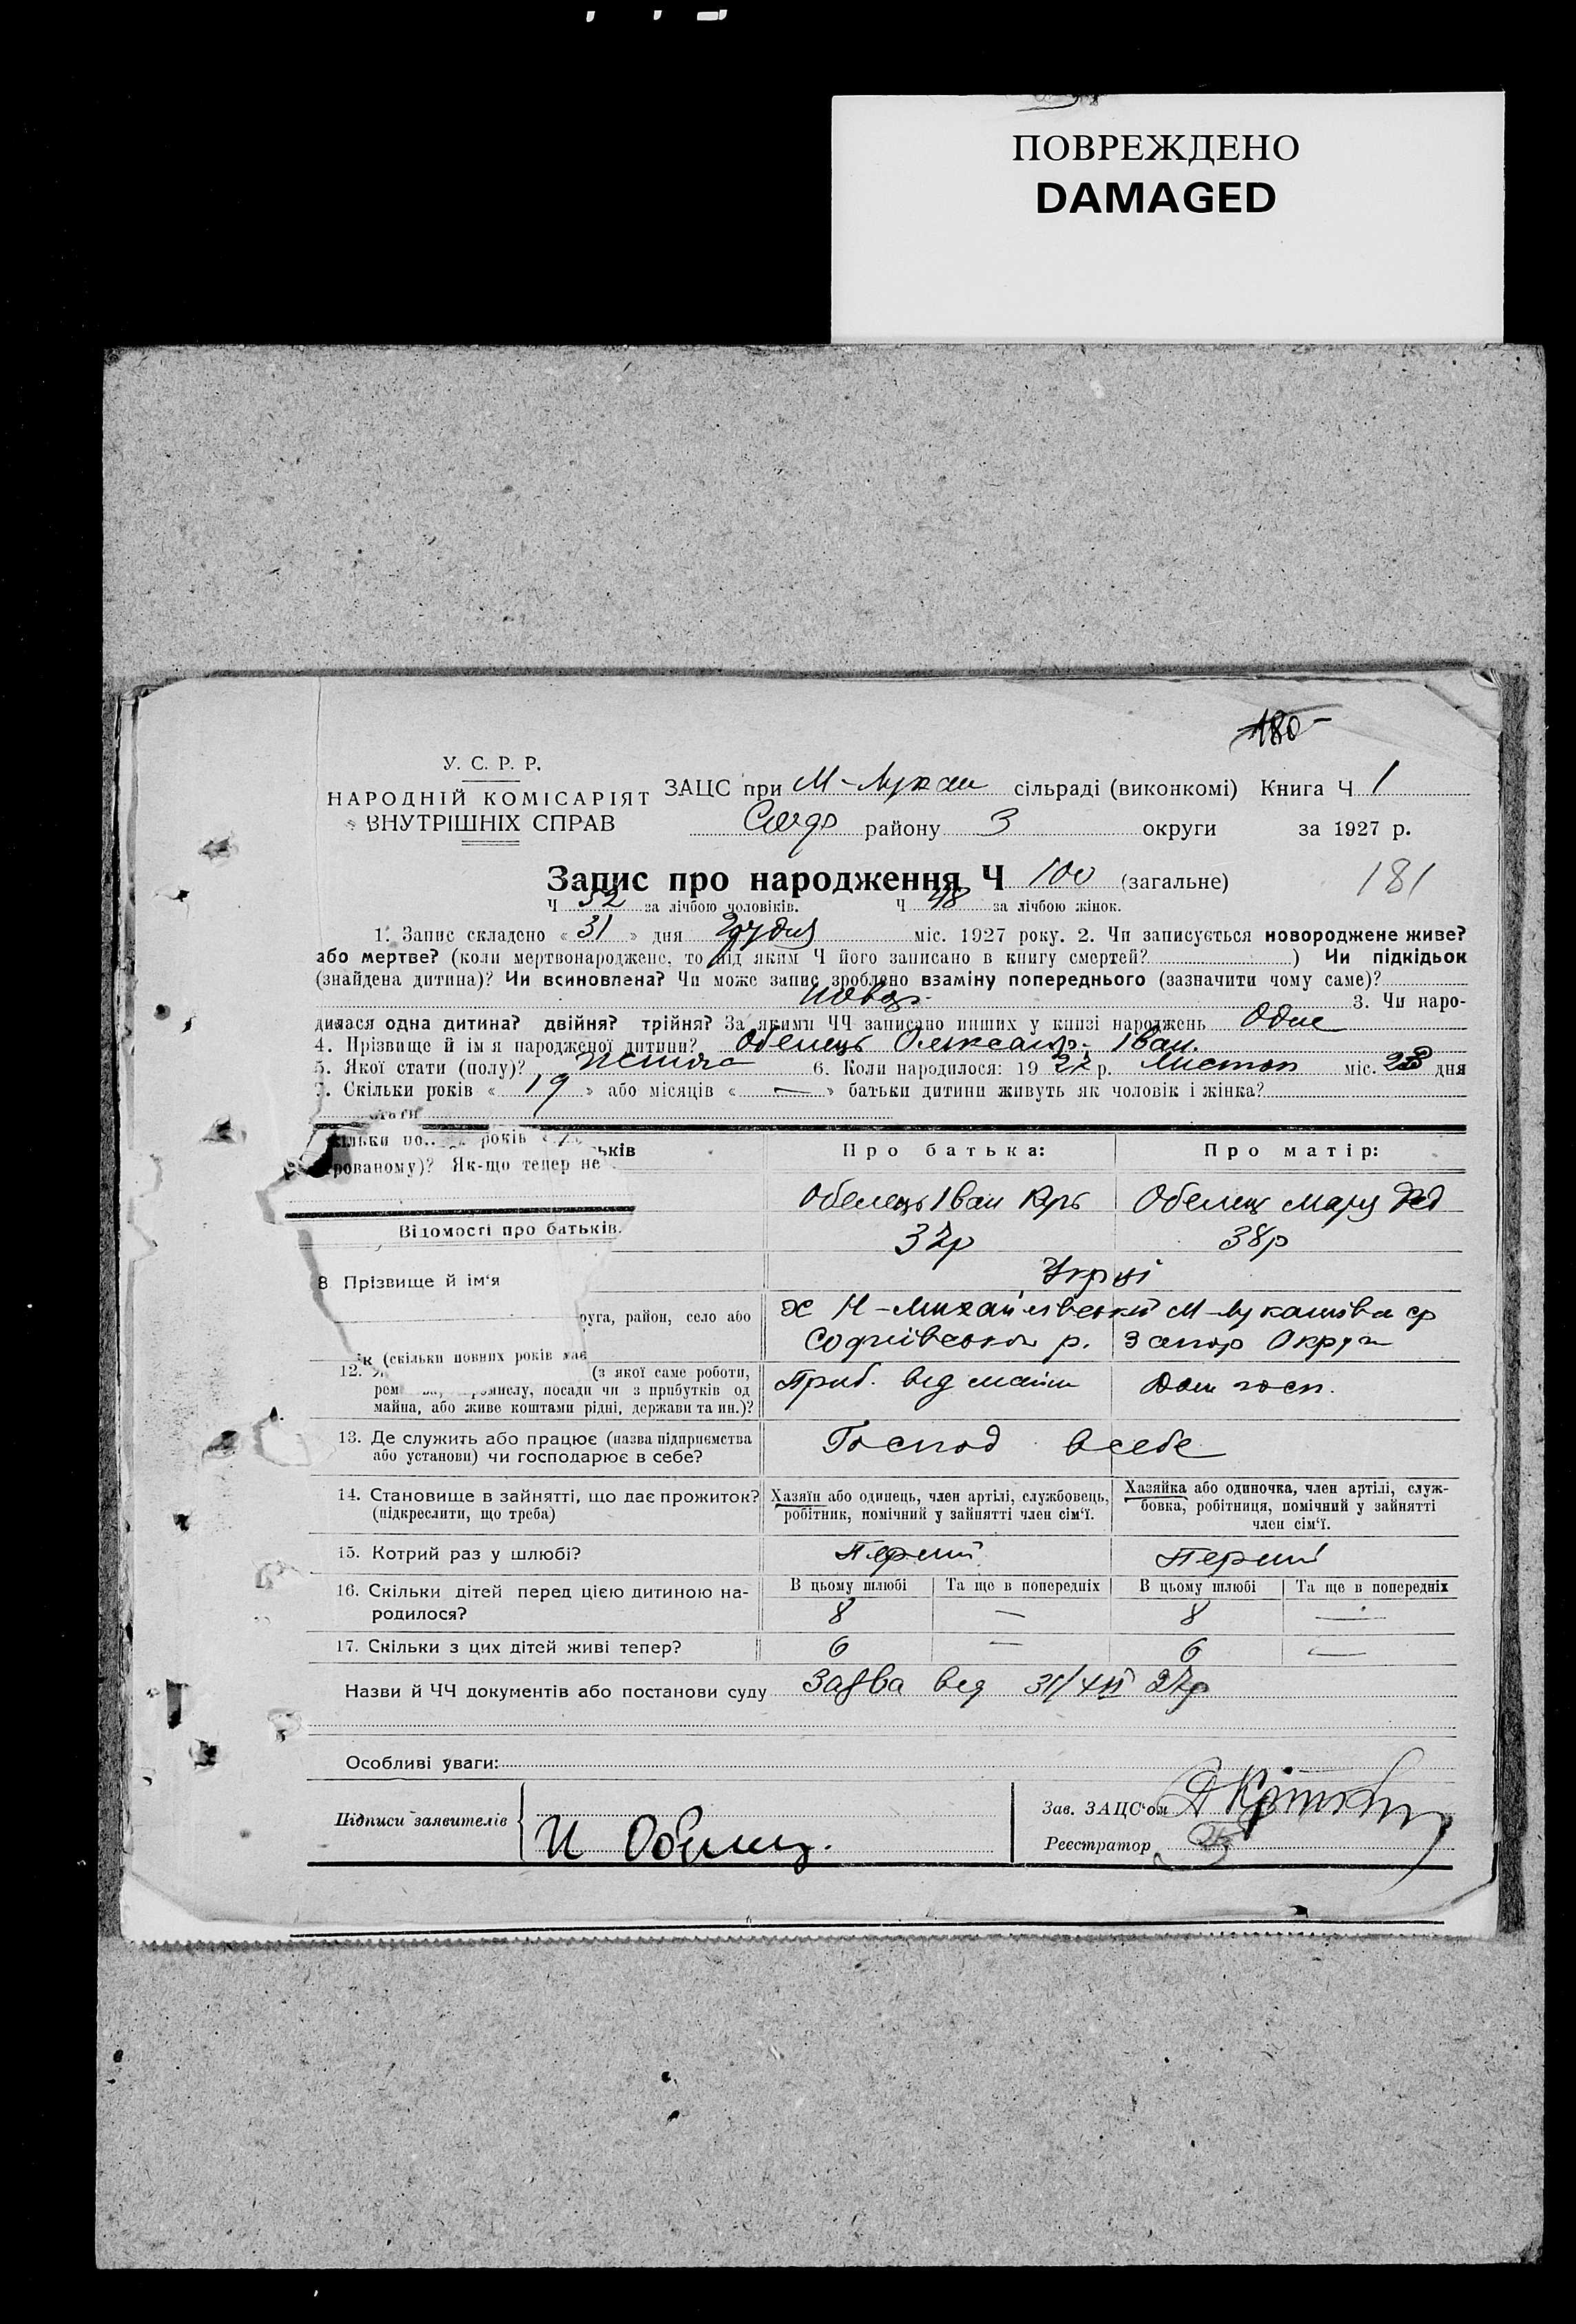 ПОВРЕЖДЕНО
DAMAGED
180
У. С. Р. Р.
НАРОДНІЙ КОМІСАРІЯТ
ВНУТРІШНІХ СПРАВ
ЗАЦС при М-Лукаш сільраді (виконкомі) Книга Ч 1
району 3 округи за 1927 р.
Запис про народження Ч 100 (загальне) 181
Ч 52 за лічбою чоловіків. Ч 48 за лічбою жінок.
1. Запис складено « 31 » дня Грудня міс. 1927 року. 2. Чи записується новороджене живе?
або мертве? (коли мертвонароджене, то під яким Ч його записано в книгу смертей? ) Чи підкідьок
(знайдена дитина)? Чи всиновлена? Чи може запис зроблено взаміну попереднього (зазначити чому саме)?
3. Чи наро-
дилася одна дитина? двійня? трійня? За якими ЧЧ записано инших у книзі народжень Одне
4. Прізвище й ім я народженої дитини? Обелець Олександр. Іван.
5. Якої стати (полу)? 6. Коли народилося: 19 27 р. Листоп міс. 28 дня
7. Скільки років « 19 » або місяців « — » батьки дитини живуть як чоловік і жінка?
років
рованому)? Як-що тепер не
ьків Про батька: Про матір:
Обелець Іван Обелец Мария Фед
Відомості про батьків.
32р 38р
8 Прізвище й ім‘я
Укрці
руга, район, село або х Н-Михайлівський М-Лукашівка ср
р. Запор Округи
ік (скільки повних років має
12. (з якої саме роботи, Приб. від майна Дом госп.
рем промислу, посади чи з прибутків од
майна, або живе коштами рідні, держави та ин.)?
13. Де служить або працює (назва підприємства Господ в себе
або установи) чи господарює в себе?
14. Становище в зайнятті, що дає прожиток? Хазяїн або одинець, член артілі, службовець, Хазяйка або одиночка, член артілі, служ-
(підкреслити, що треба) робітник, помічний у зайнятті член сім‘ї. бовка, робітниця, помічний у зайнятті
член сім‘ї.
15. Котрий раз у шлюбі? Перший Перший
16. Скільки дітей перед цією дитиною на- В цьому шлюбі Та ще в попередніх В цьому шлюбі Та ще в попередніх
родилося? 8 — 8 —
17. Скільки з цих дітей живі тепер? 6 — 6 —
Назви й ЧЧ документів або постанови суду Заява від 27р
Особливі уваги:
Підписи заявителів И Обелец.
Зав. ЗАЦС‘ом
Реєстратор